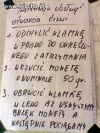 otwarcia drzwi
1. ODCHYLIĆ KLAMKĘ
W PRAWO DO OKREŚLO-
NEGO ZATRZYMANIA
2. WRZUCIĆ MONETĘ
O NOMINALE 50 gr.
3. OBRÓCIĆ KLAMKĘ,
W LEWO AŻ USŁYSZYMY
BRZĘK MONETY A
NASTĘPNIE POCIĄGAMY